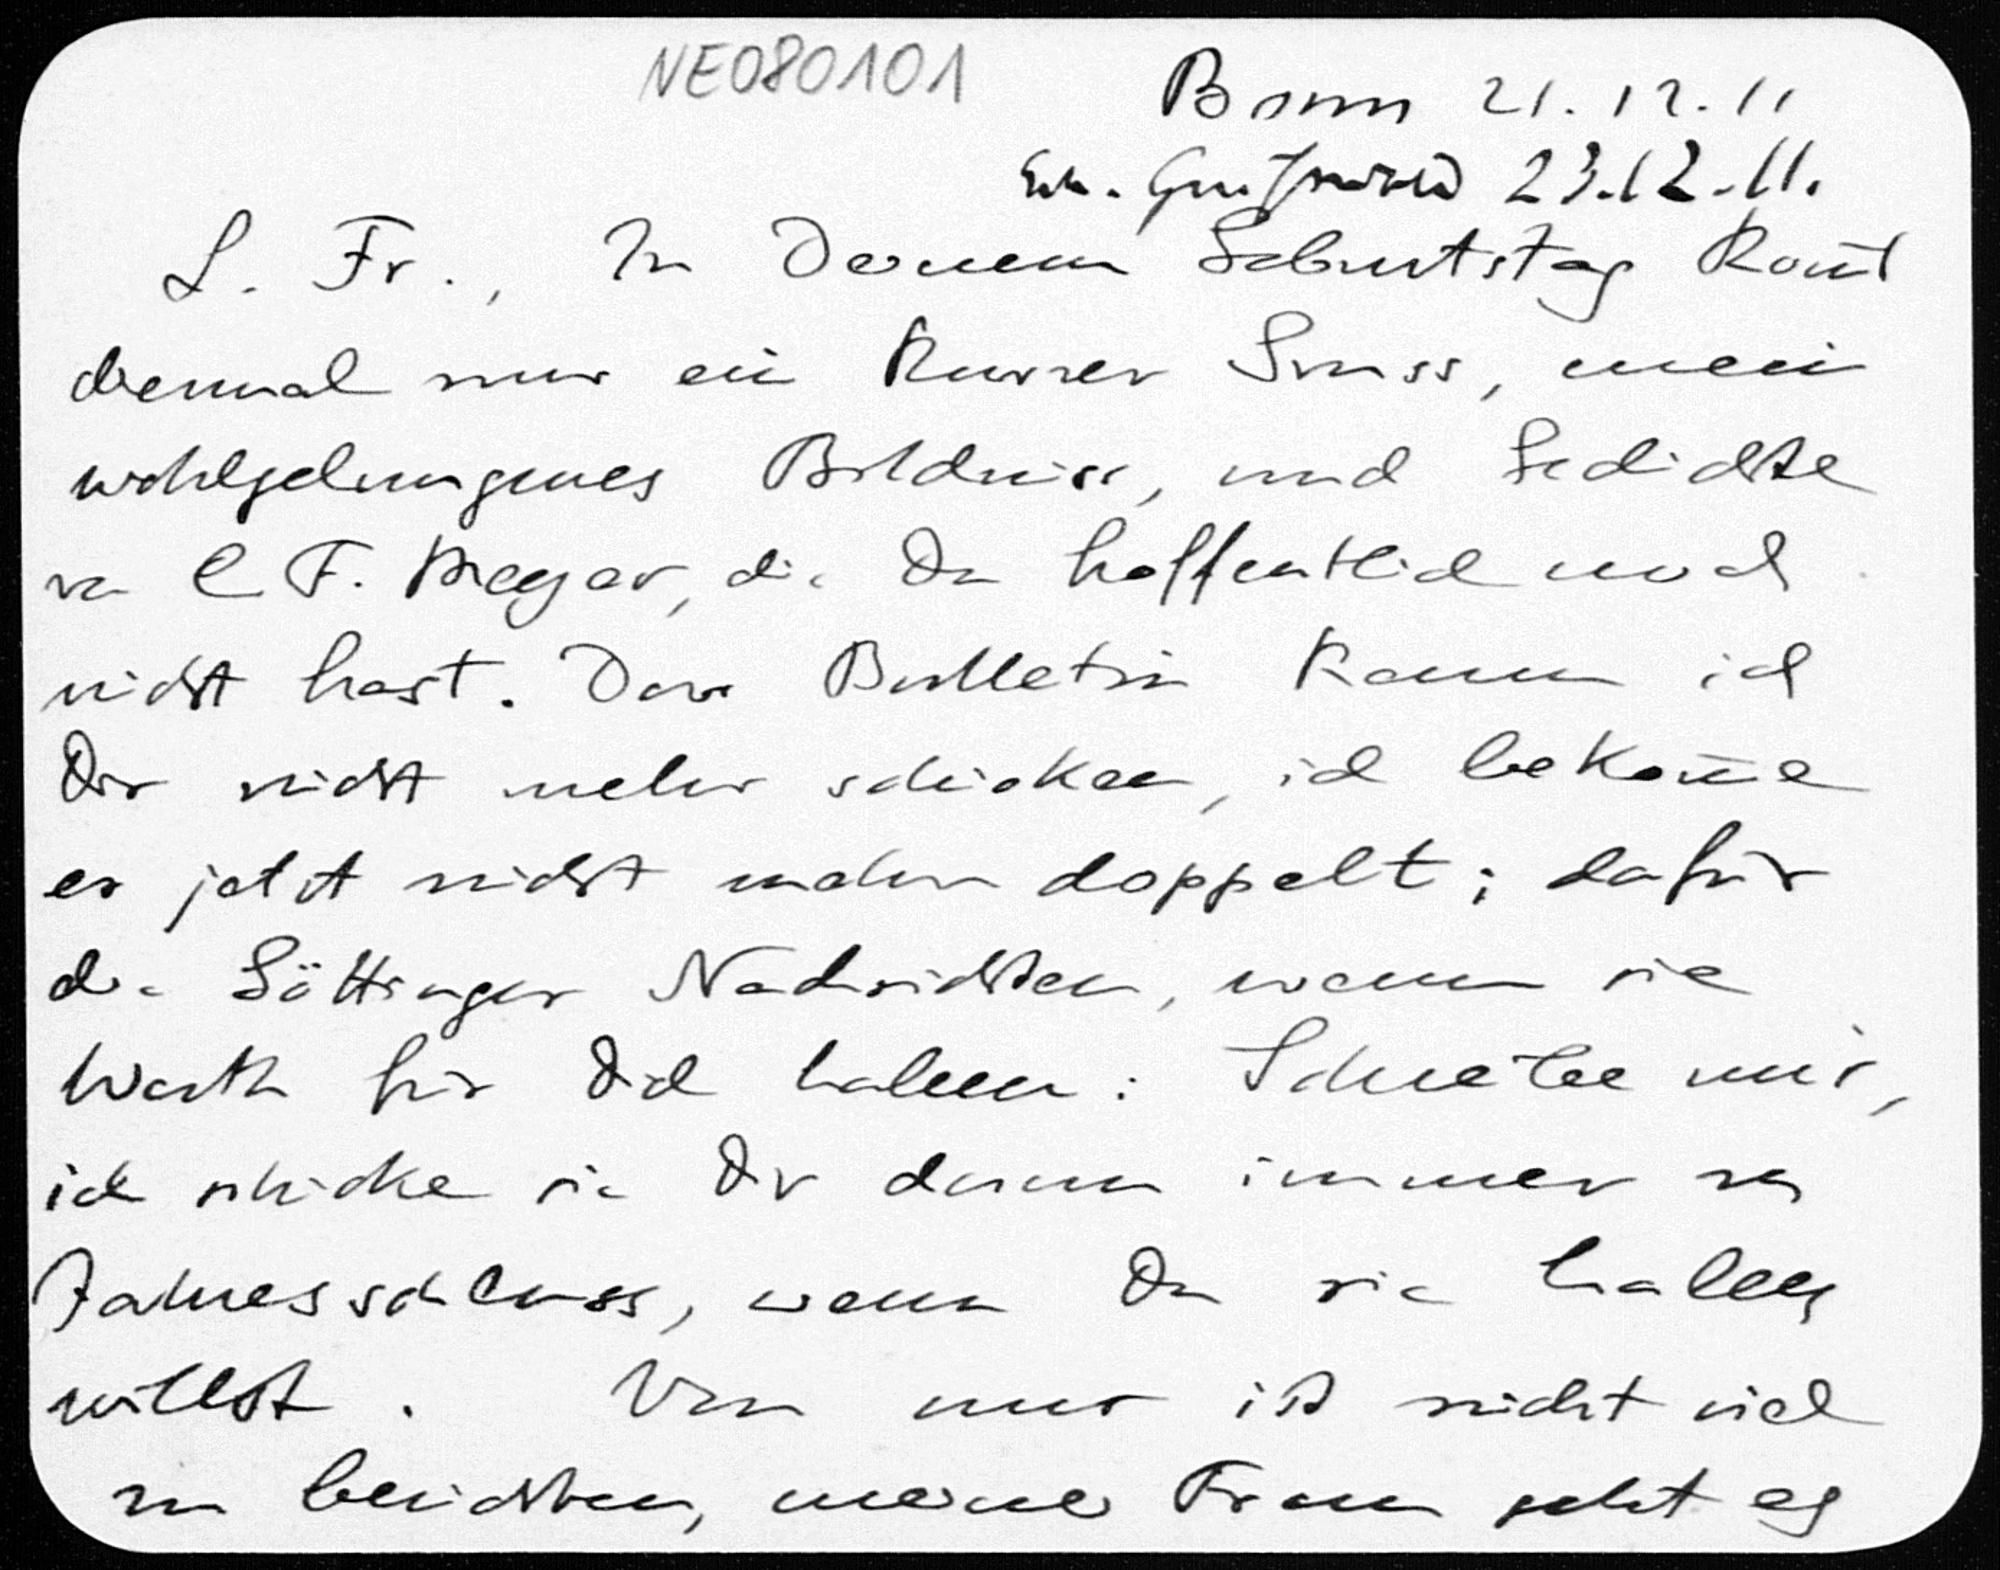 NE080101
Bonn 21.12.11
Erh. Greifswald 23.12.11.
L. Fr., Zu Deinem Geburtstag kom̄t
diesmal nur ein kurzer Gruss, mein
wohlgelungenes Bildniss, und Gedichte
von C F. Meyer, die Du hoffentlich noch
nicht hast. Das Bulletin kann ich
Dir nicht mehr schicken, ich bekom̄e
es jetzt nicht mehr doppelt; dafür
die Göttinger Nachrichten, wenn sie
Werth für Dich haben: Schreibe mir,
ich schicke sie Dir dann immer zu
Jahresschluss, wenn Du sie haben
willst. Von mir ist nicht viel
zu berichten, meiner Frau geht es